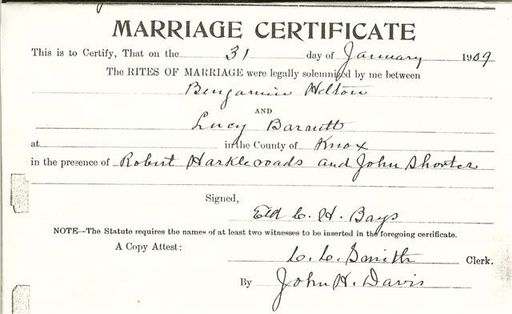 MARRIAGE CERTIFICATE
This is to Certify, That on the 31 day of January 1909
The RITES OF MARRIAGE were legally solemnized by me between
Benjamin Helton
AND
Lucy Barnett
at in the County of Knox
in the presence of Robert Harklewoads and John Shorter
Signed,
Eld C. H. Bays
NOTE—The Statute requires the names of at least two witnesses to be inserted in the foregoing certificate.
A Copy Attest: C. C. Smith Clerk.
By John H. Davis